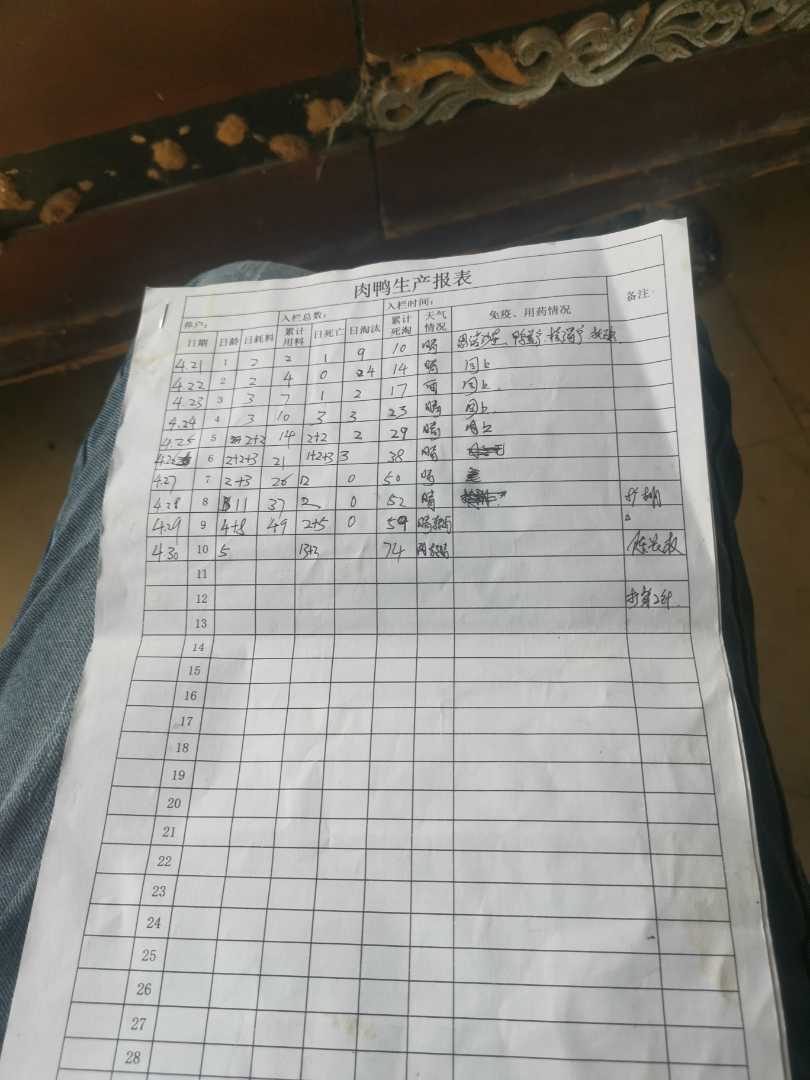 肉鸭生产报表
养户： 入栏总数： 入栏时间： 备注
日期 日龄 日耗料 累计用料 日死亡 日淘汰 累计死淘 天气情况 免疫、用药情况
4.21 1 2 2 1 9 10 晴
4.22 2 2 4 0 4 14 晴 同上
4.23 3 3 7 1 2 17 雨 同上
4.24 4 3 10 3 3 23 晴 同上
4.25 5 2+2 14 2+2 2 29 晴 同上
4.26 6 2+2+3 21 1+2+3 3 38 晴
4.27 7 2+3 26 12 0 50 晴
4.28 8 11 37 2 0 52 晴
4.29 9 4+8 49 2+5 0 59
4.30 10 5 13+2 74
11
12 打第2针
13
14
15
16
17
18
19
20
21
22
23
24
25
26
27
28